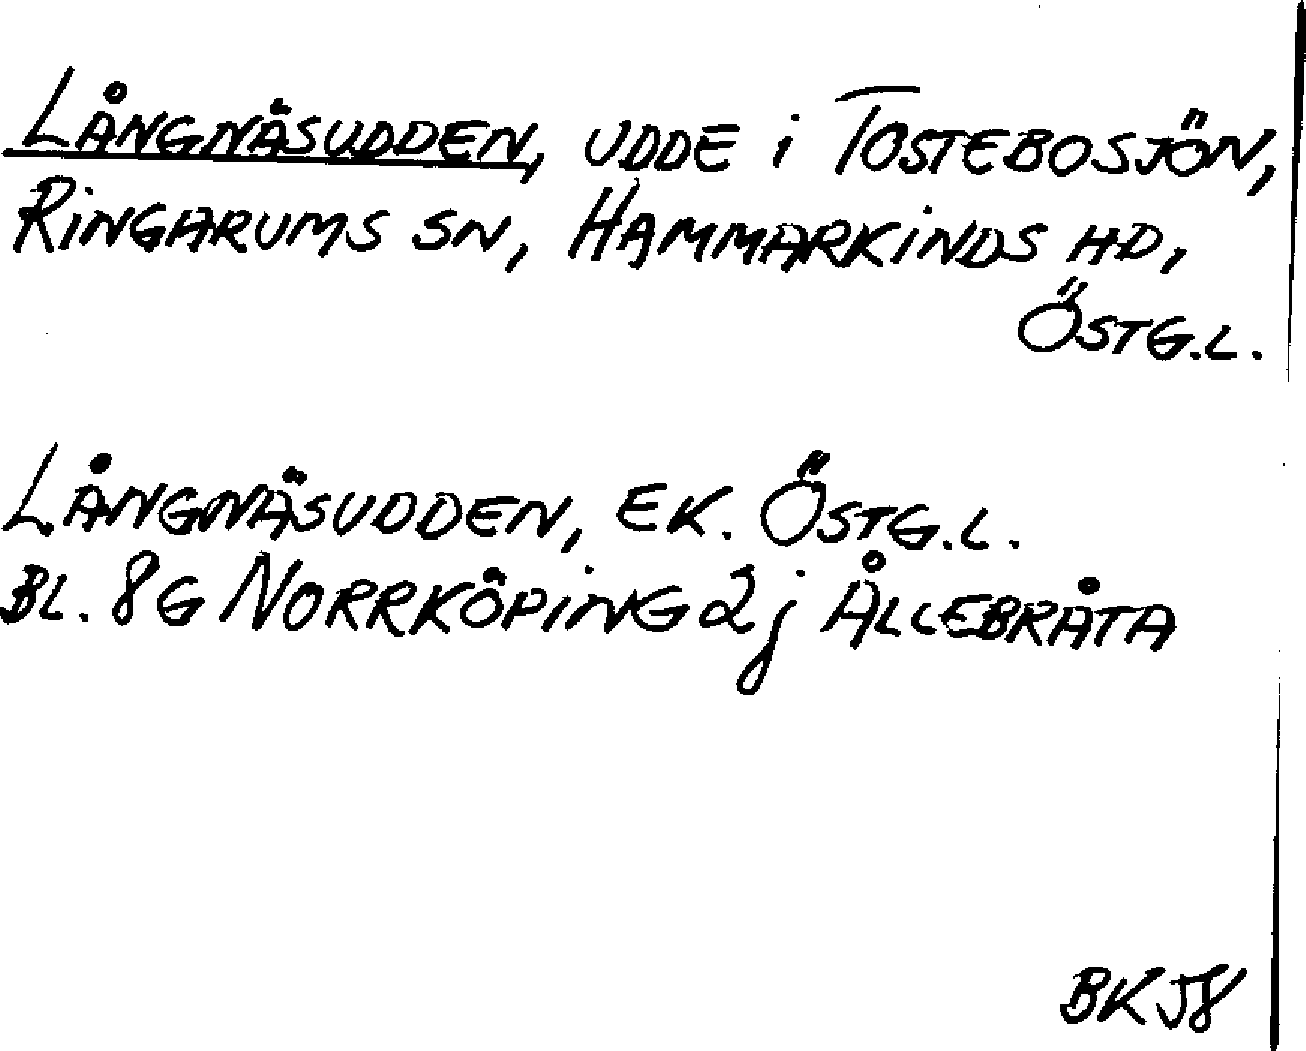 LÅNGNÄSUDDEN, UDDE i TOSTEBOSJÖN,
RINGARUMS SN, HAMMARKINDS HD,
ÖSTG.L.
LÅNGNÄSUDDEN, EK. ÖSTG.L.
BL. 8G NORRKÖPING 2j ÅLLEBRÅTA
BK 58